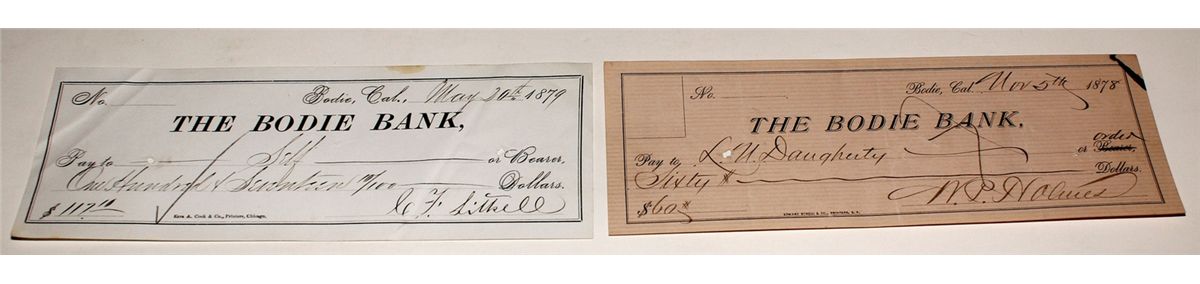 No.
Bodie, Cal., May 26th 1879
THE BODIE BANK,
Pay to Self or Bearer,
One Hundred & Seventeen 10/100 Dollars.
$ 117 10
Ezra A. Cook & Co., Printers, Chicago.
No.
Bodie, Cal. Nov 5th 1878
THE BODIE BANK,
order
Pay to L. U. Daugherty or Bearer,
Sixty Dollars.
$60
W. P. Holmes